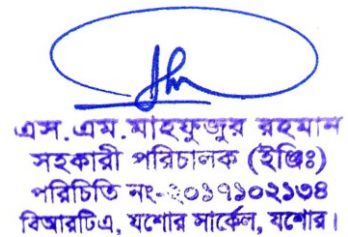 এস.এম.মাহফুজুর রহমান
সহকারী পরিচালক (ইঞ্জিঃ)
পরিচিতি নং-২০১৭১০২১৩৪
বিআরটিএ, যশোর সার্কেল, যশোর।